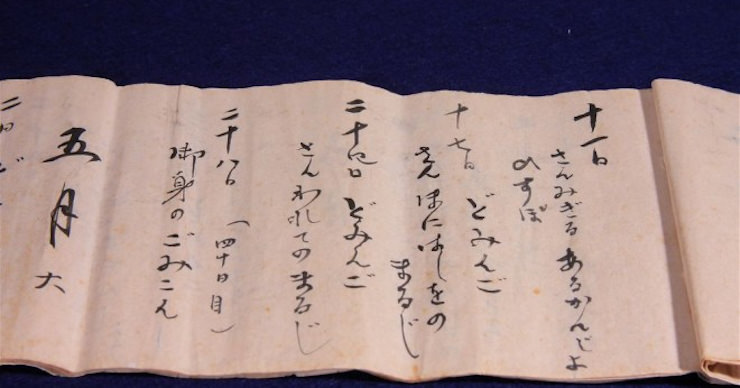 十一日
さんみぎる あるかんじよ
のすぽ
十七日 どみんご
さんほにはしをの
まるじ
二十四日 どみんご
さんわれての まるじ
二十八日 (四十日目)
御身のごみこん
五月 大